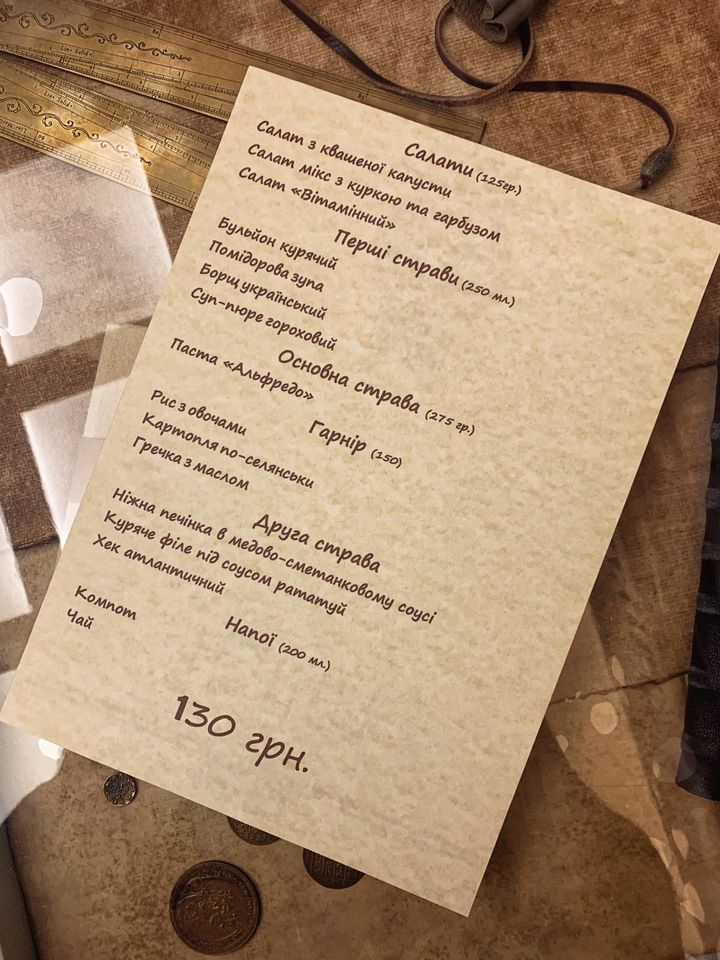 Салати (125гр.)
Салат з квашеної капусти
Салат мікс з куркою та гарбузом
Салат «Вітамінний»
Перші страви (250 мл.)
Бульйон курячий
Помідорова зупа
Борщ український
Суп-пюре гороховий
Основна страва (275 гр.)
Паста «Альфредо»
Гарнір (150)
Рис з овочами
Картопля по-селянськи
Гречка з маслом
Друга страва
Ніжна печінка в медово-сметанковому соусі
Куряче філе під соусом рататуй
Хек атлантичний
Напої (200 мл.)
Компот
Чай
130 грн.